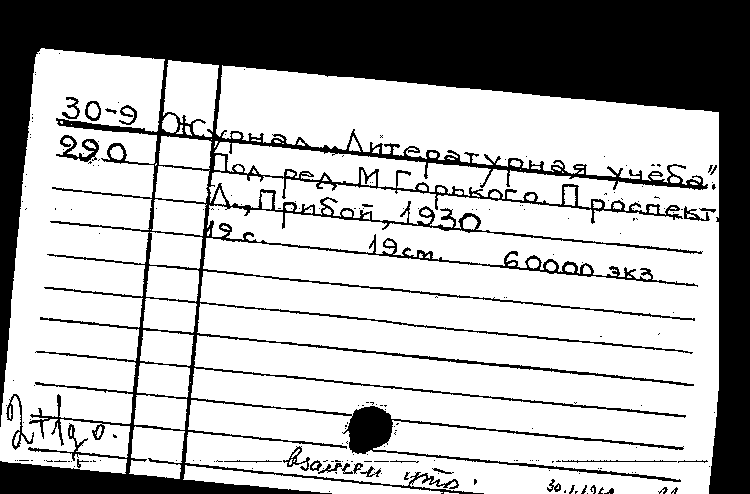 30-9 Журнал „Литературная учёба".
290 Под ред. М Горького. Проспект.
Л., Прибой, 1930
12 с. 19 см. 60000 экз
2+1 д о.
взамен утр.